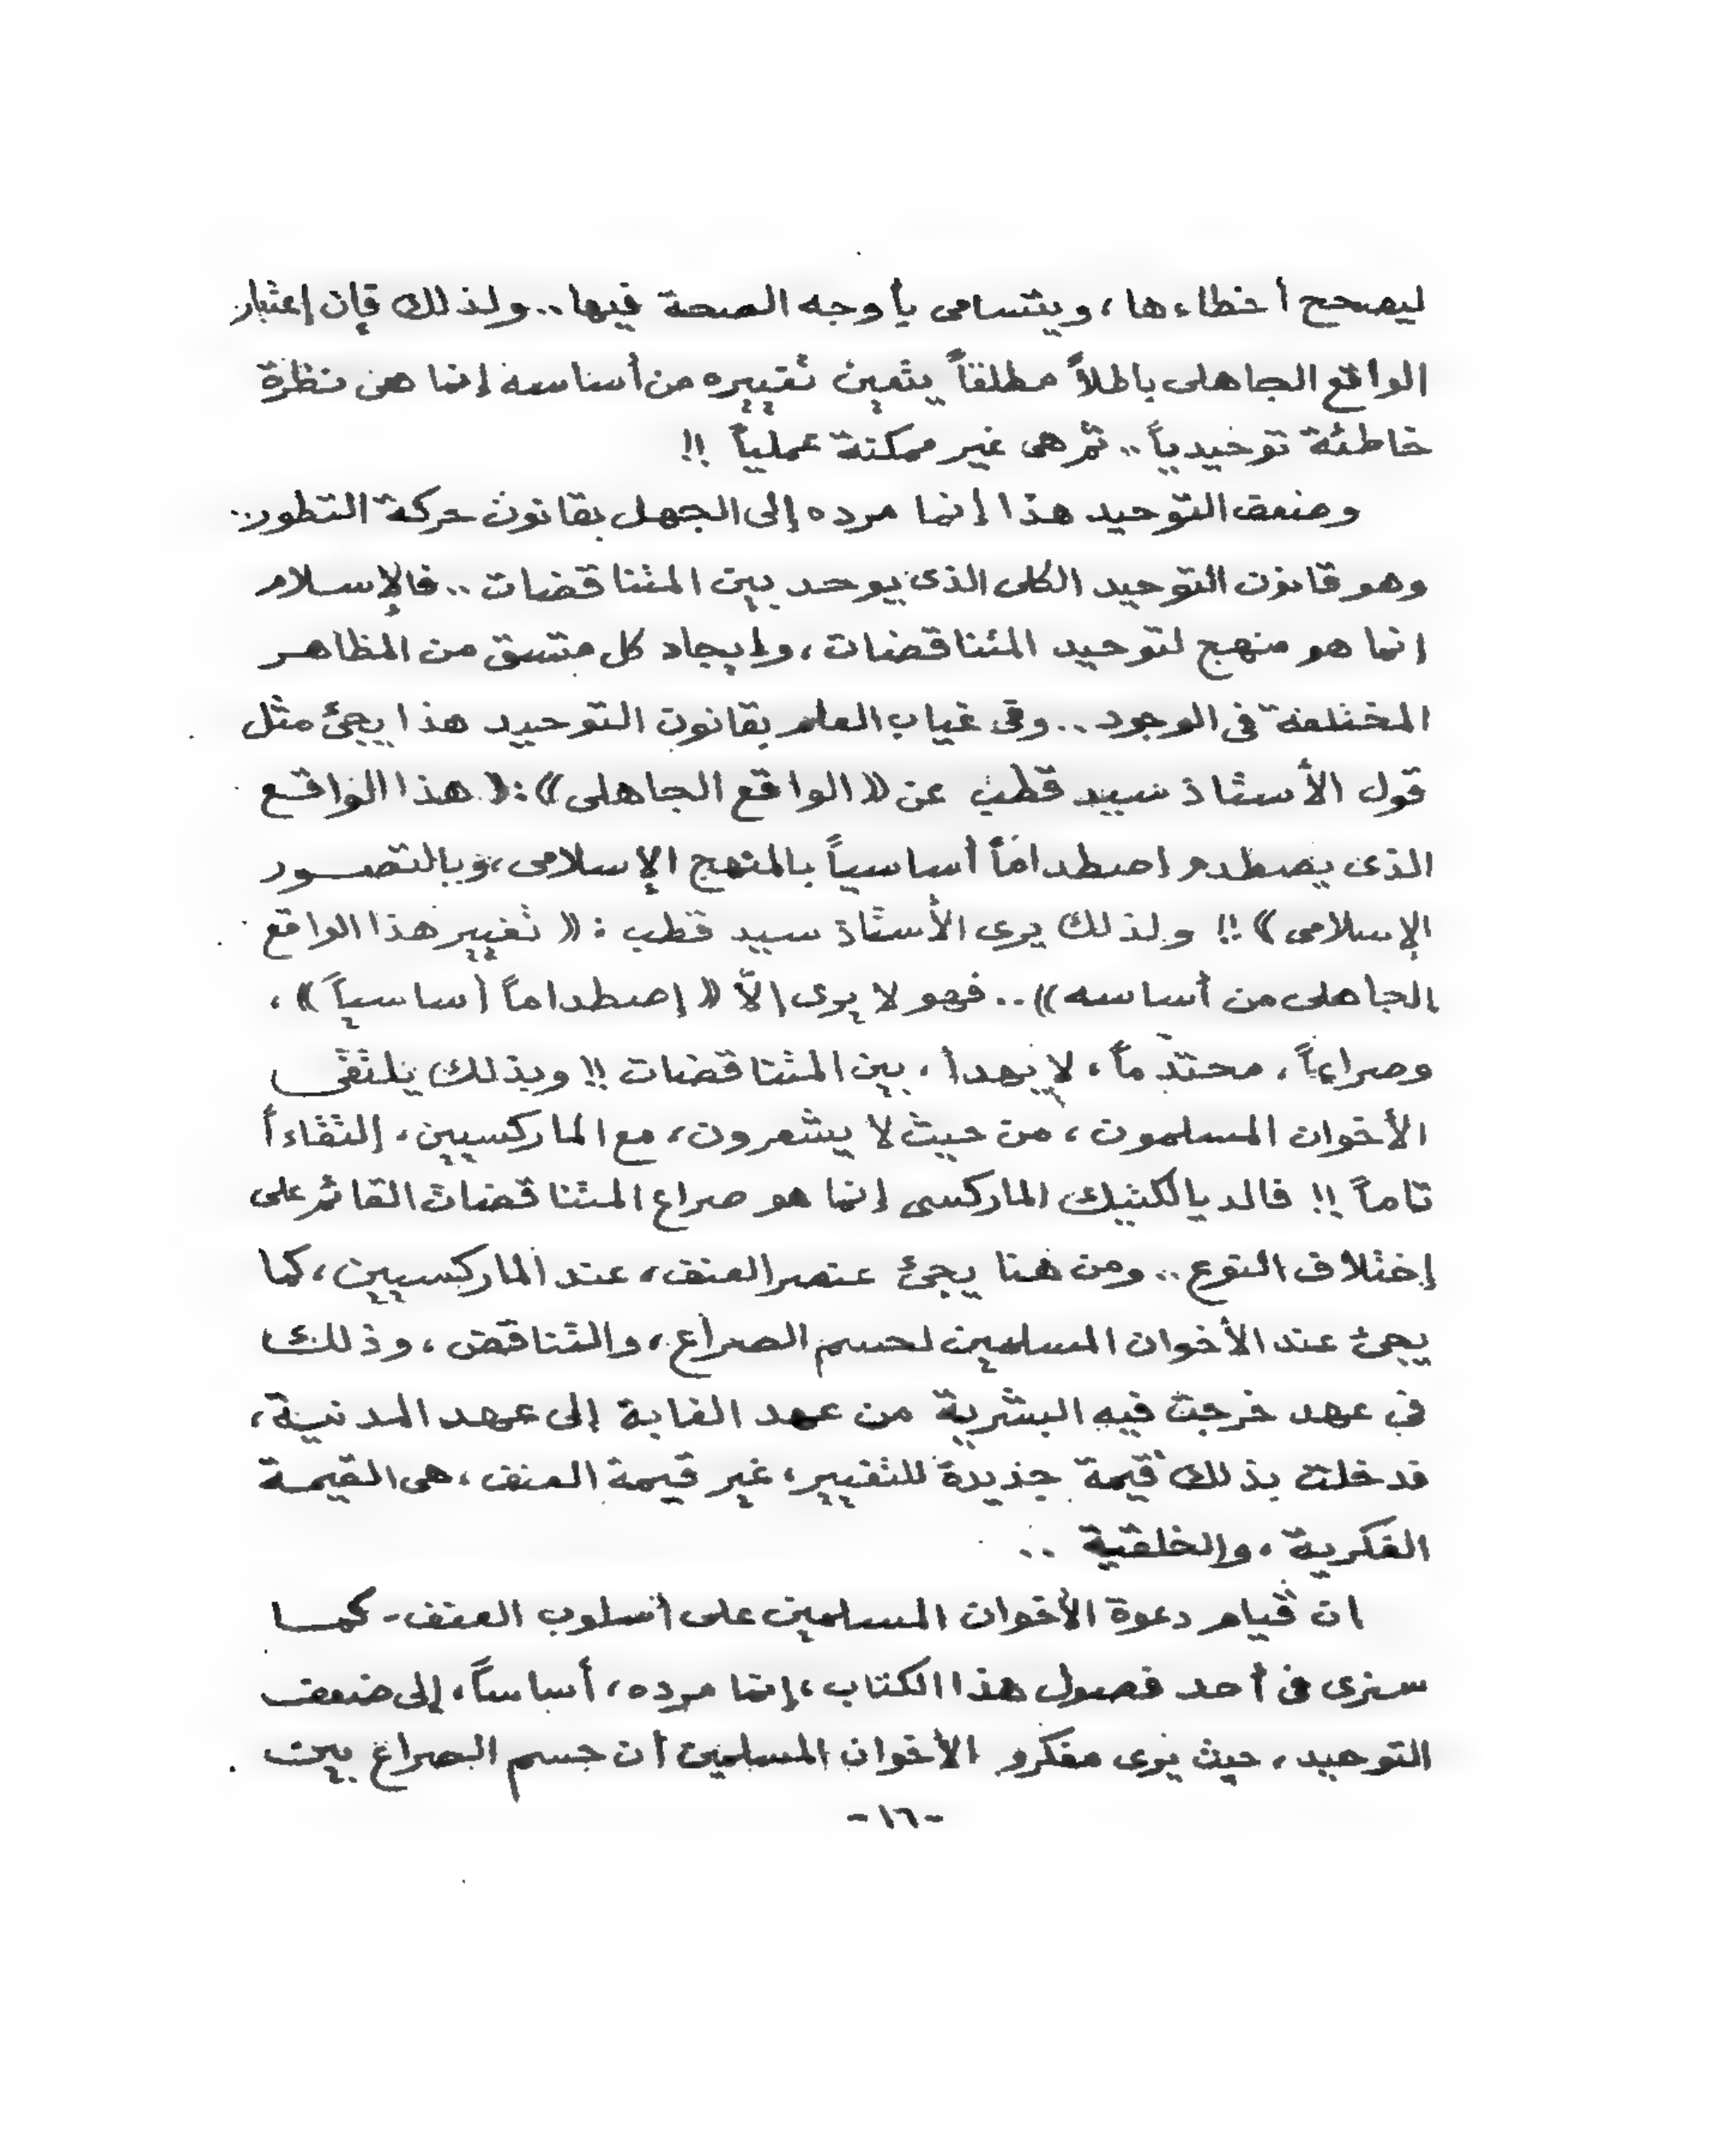 ليصحح أخطاءها، ويتسامى بأوجه الصحة فيها.. ولذلك فإن إعتبار
الواقع الجاهلى باطلاً مطلقاً يتعين تغييره من أساسه إنما هى نظرة
خاطئة توحيدياً.. ثم هى غير ممكنة عملياً !!
وضعف التوحيد هذا إنما مرده إلى الجهل بقانون حركة التطور..
وهو قانون التوحيد الكلى الذى يوحد بين المتناقضات.. فالإسلام
إنما هو منهج لتوحيد المتناقضات، وإيجاد كل متسق من المظاهر
المختلفة فى الوجود.. وفى غياب العلم بقانون التوحيد هذا يجئ مثل
قول الأستاذ سيد قطب عن ((الواقع الجاهلى)): (( هذا الواقع
الذى يصطدم اصطداماً أساسياً بالمنهج الإسلامى، وبالتصور
الإسلامى)) !! ولذلك يرى الأستاذ سيد قطب : (( تغيير هذا الواقع
الجاهلى من أساسه)).. فهو لا يرى الاّ ((إصطداماً أساسياً))،
وصراعاً، محتدماً، لا يهدأ، بين المتناقضات !! وبذلك يلتقى
الأخوان المسلمون، من حيث لا يشعرون، مع الماركسيين، إلتقاءاً
تاماً !! فالديالكتيك الماركسى إنما هو صراع المتناقضات القائم على
إختلاف النوع.. ومن هنا يجئ عنصر العنف، عند الماركسيين، كما
يجئ عند الأخوان المسلمين لحسم الصراع، والتناقض، وذلك
فى عهد خرجت فيه البشرية من عهد الغابة إلى عهد المدنية،
فدخلت بذلك قيمة جديدة للتغيير، غير قيمة العنف، هى القيمة
الفكرية، والخلقية ..
ان قيام دعوة الأخوان المسلمين على أسلوب العنف - كما
سنرى فى أحد فصول هذا الكتاب، إنما مرده، أساساً، إلى ضعف
التوحيد، حيث يرى مفكرو الأخوان المسلمين أن حسم الصراع بين
-١٦-